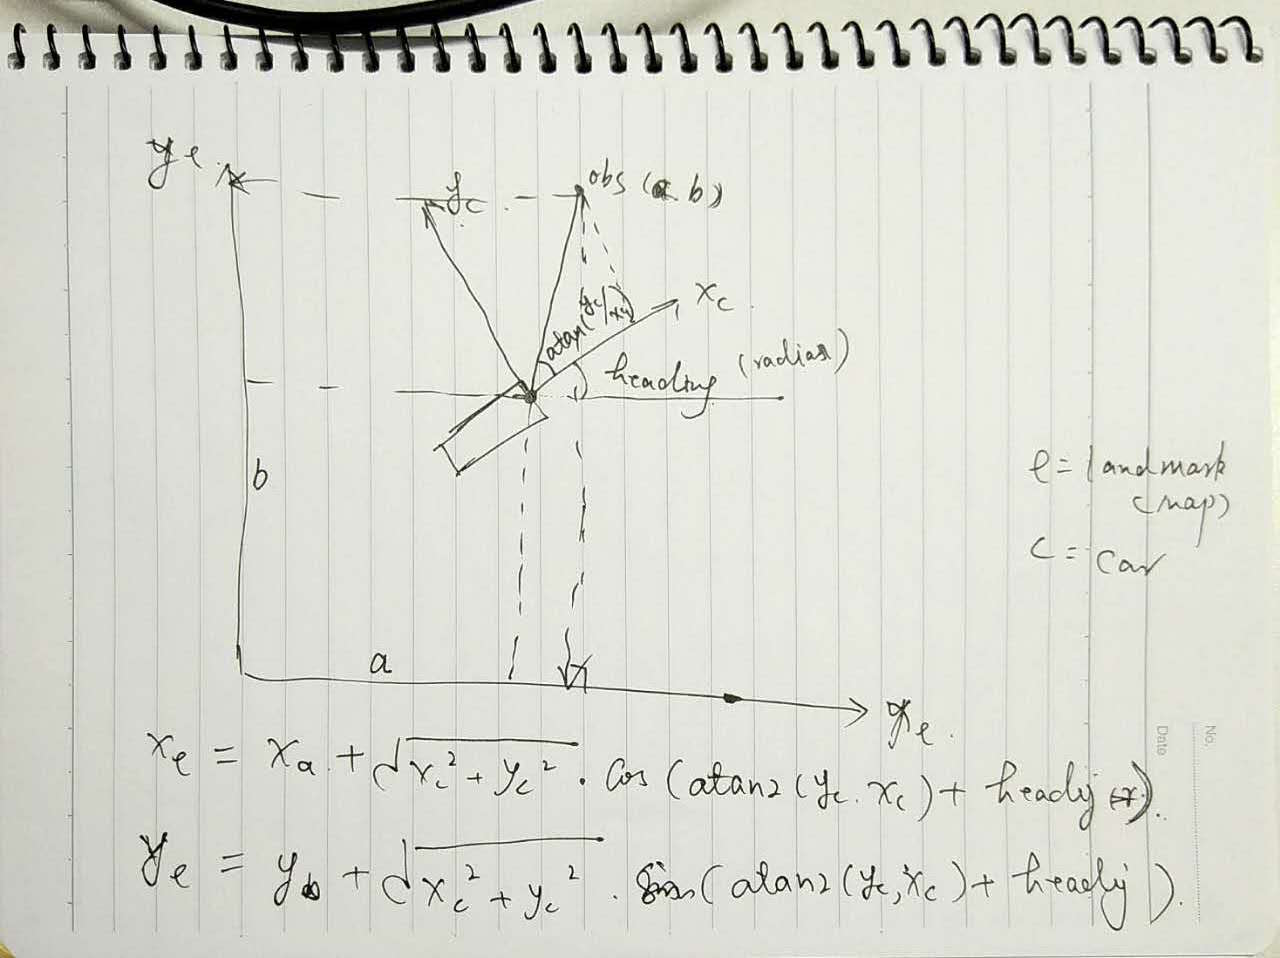 yₑ
y_c
obs (a. b)
atan(y_c/x_c)
x_c
heading (radian)
b
e = landmark
(map)
c = car
a
xₑ.
xₑ = x_a + √(x_c² + y_c²) . cos (atan2 (y_c. x_c) + headij
yₑ = y_b + √(x_c² + y_c²) . Sin (atan2 (y_c, x_c) + headij).
No.
Date